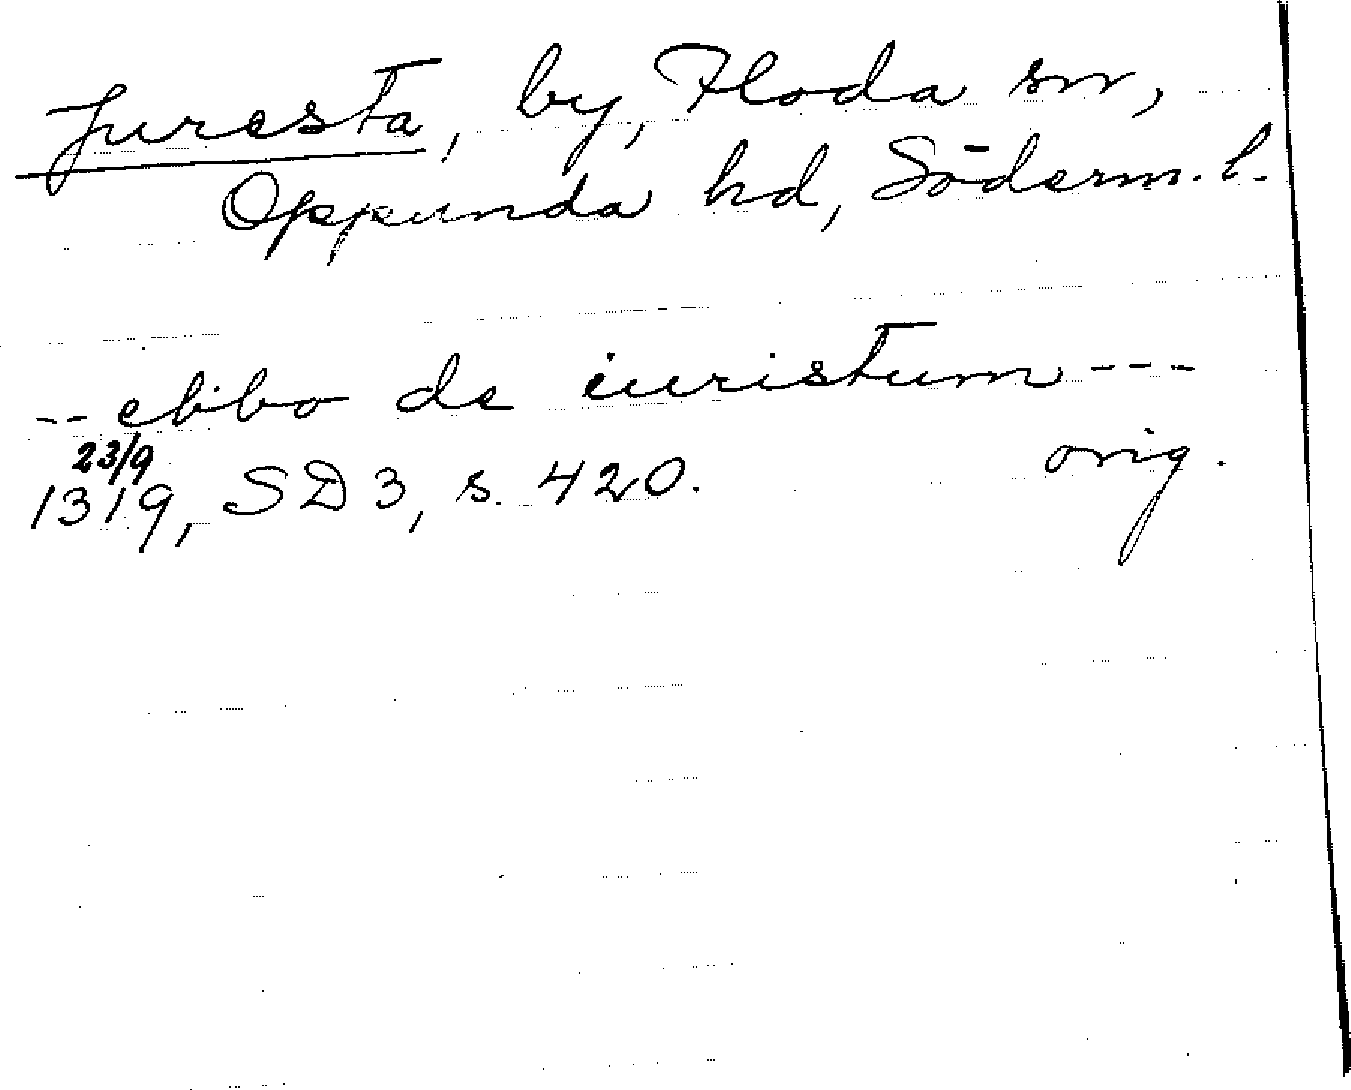 Juresta, by, Floda sn,
Oppunda hd, Söderm. l.
-- ebbo de iuristum ---
23/9
1319, SD 3, s. 420. orig.